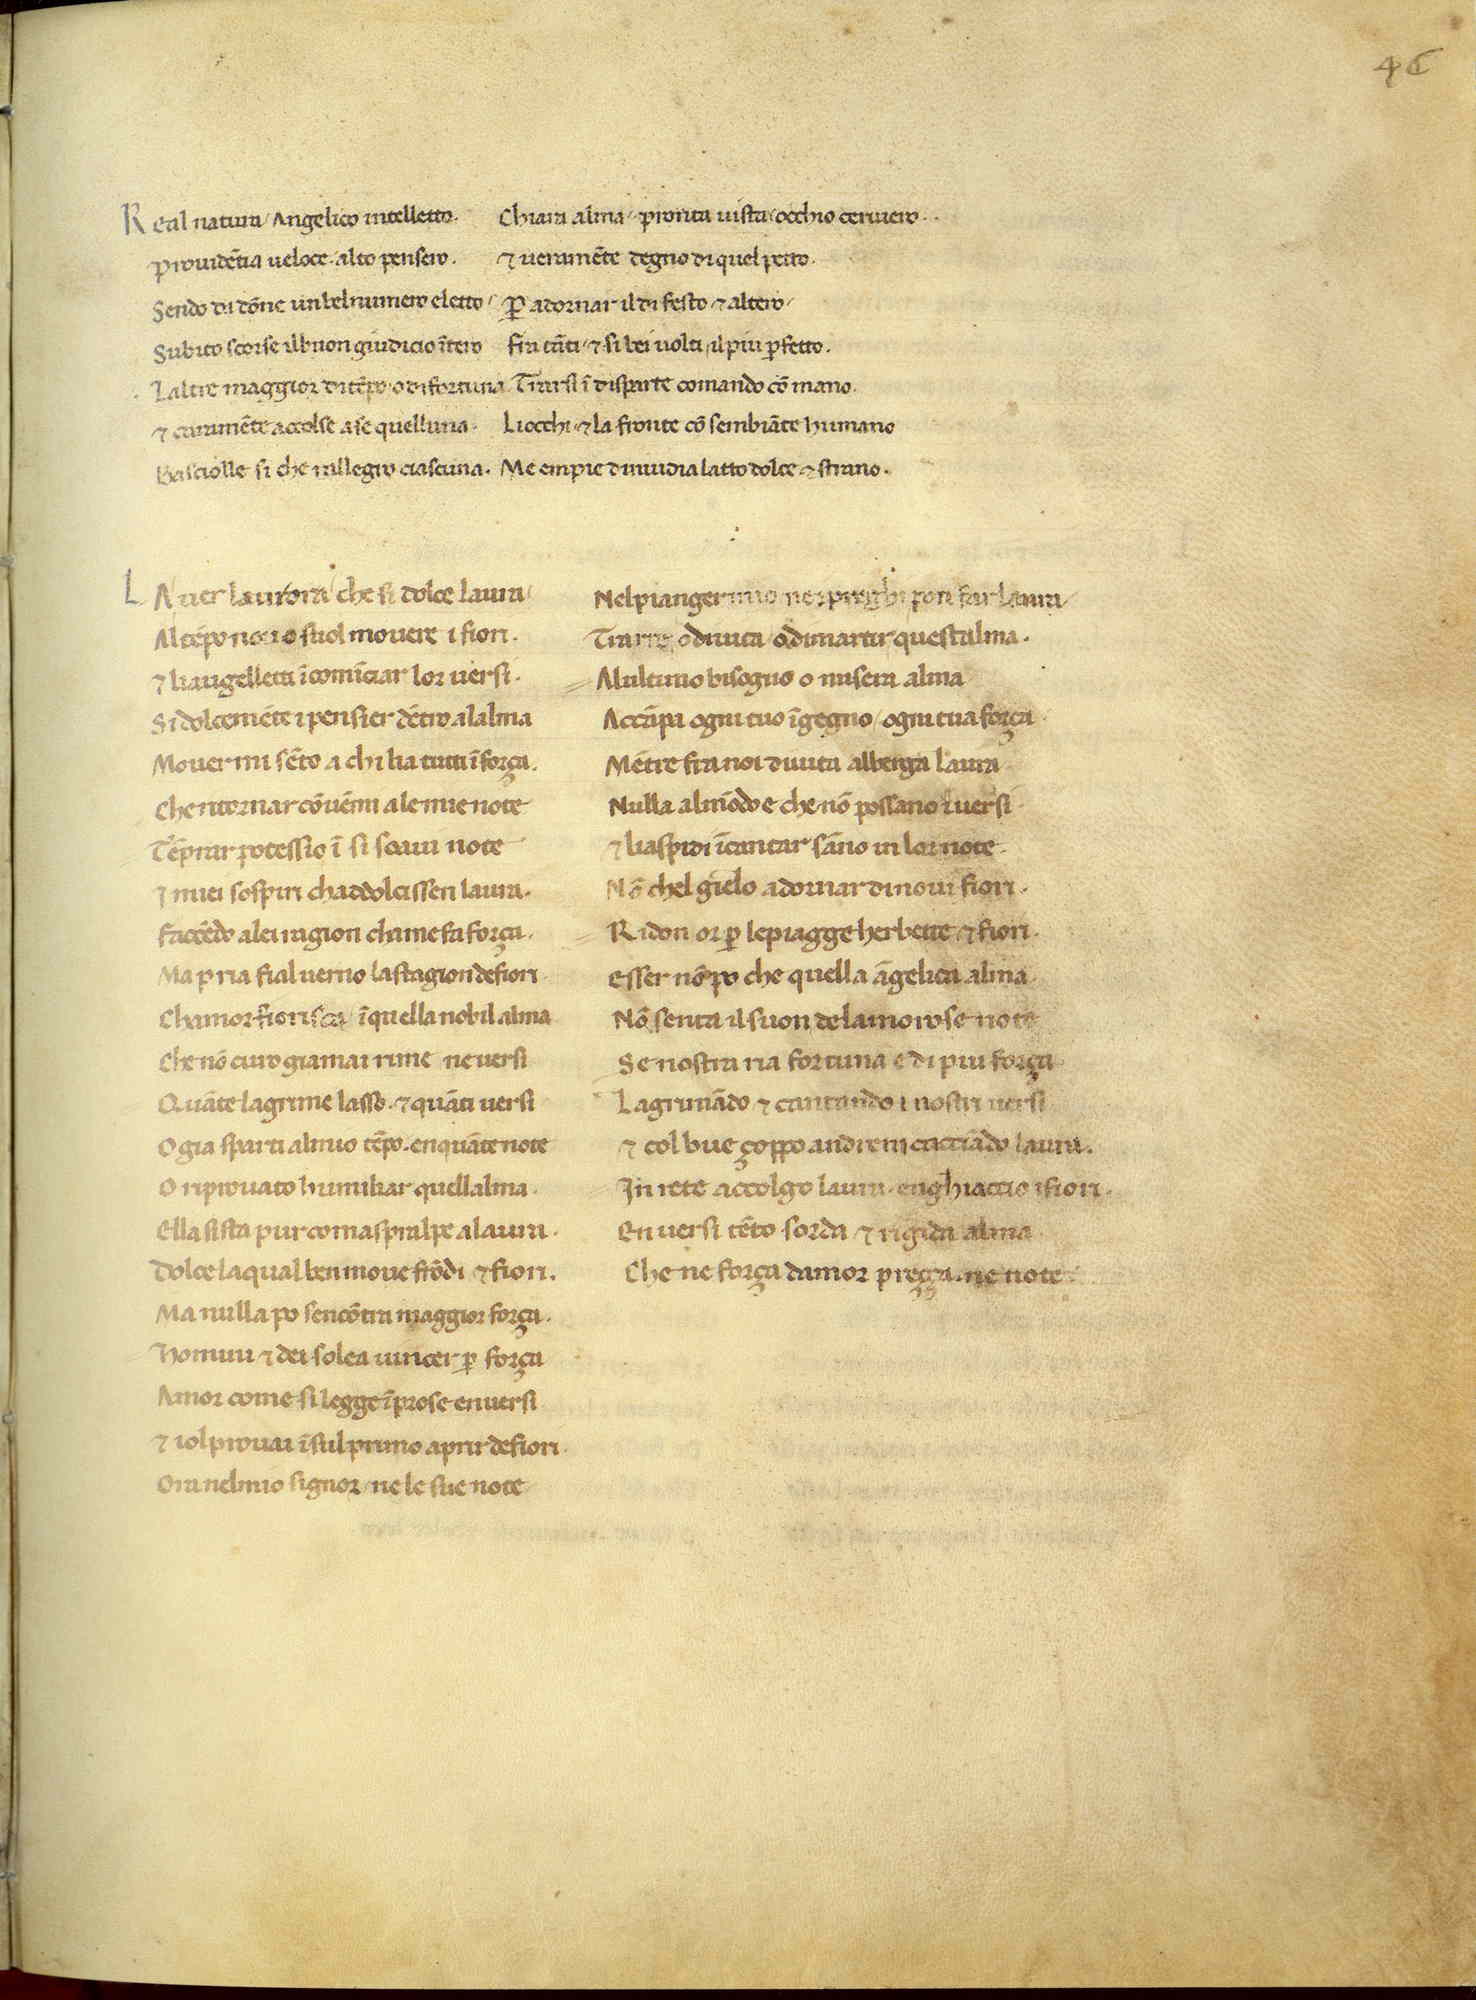 46
Real natura / Angelico intelletto. Chiara alma / pronta uista / occhio ceruero.
Prouidētia ueloce. alto pensero. et ueramēte degno di quel petto.
Sendo di dōne un bel numero eletto / Per adornar il di festo et altero /
Subito scorse il buon giudicio ītero Fra tāti / et si bei uolti / il piu perfetto.
Laltre maggior di tēpo. o di fortuna Trarsi ī disparte comando cō mano.
et caramēte accolse a se quelluna. Li occhi et la fronte cō sembiāte humano
Basciolle si che rallegro ciascuna. Me empie dinuidia latto dolce et strano.
LA uer laurora / che si dolce laura /
Al tēpo nouo suol mouere i fiori.
et li augelletti īcomīciar lor uersi.
Si dolcemēte i pensier dētro a lalma
Mouer mi sēto a chi lia tutti ī força.
Che ritornar cōuēmi a le mie note
Tēprar potessio ī si soaui note
I miei sospiri chaddolcissen laura.
Faccēdo a lei ragion cha me fa força.
Ma pria fia l uerno la stagion de fiori.
Chamor fiorisca / ī quella nobil alma
Che nō curo giamai rime ne uersi
Quāte lagrime lasso. et quāti uersi
O gia sparti al mio tēpo. en quāte note
O riprouato humiliar quellalma.
Ella si sta pur comaspralpe a laura.
Dolce la qual ben moue frōdi et fiori.
Ma nulla po se ncōtra maggior força.
Homini et dei solea uincer per força
Amor come si legge ī prose en uersi
et iol prouai ī sul primo aprir de fiori.
Ora nel mio signor / ne le sue note
Nel pianger mio ne i preghi pon far laura /
Trarre / o di uita / o di martir questalma.
A lultimo bisogno o misera alma
Accāpa ogni tuo īgegno / ogni tua força
Mētre fra noi di uita alberga laura
Nulla al mōdo e che nō possano i uersi
et li aspidi īcantar sāno in lor note.
Nō chel gielo adornar di noui fiori.
Ridon or per le piagge herbette et fiori.
Esser nō po che quella āgelica alma
Nō senta il suon de lamorose note
Se nostra ria fortuna e di piu força
Lagrimādo et cantando i nostri uersi
et col bue çoppo andrem cacciādo laura.
In rete accolgo laura. en ghiaccio i fiori.
En uersi tēto sorda et rigida alma
Che ne força damor preçça. ne note